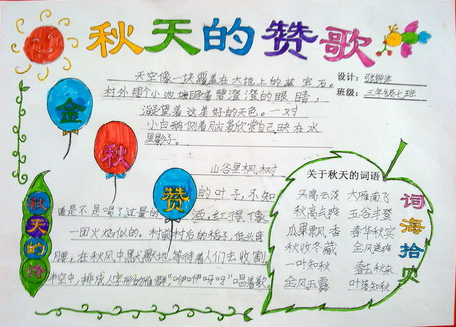 秋天的赞歌
天空像一块覆盖在大地上的蓝宝石。
村外那个小池塘睁着碧澄澄的眼睛，
凝望着这美好的天色。一对
小白鹅侧着脑袋欣赏自己映在水
里影子。
山谷里枫树
的叶子，不知
是不是喝了过量的酒，红得像
一团火焰似的。村前村后的稻子，低头弯
腰，在秋风中默默地等待着人们去收割
半空中，排成人字形的雁群"咿咿呀呀"唱着歌。
设计：
班级：三年级七班
金
秋
赞
秋天的诗
关于秋天的词语
天高云淡 大雁南飞
秋高气爽 五谷丰登
瓜果飘香 春华秋实
秋收冬藏 金风送爽
一叶知秋
金风玉露 叶落知秋
词海拾贝